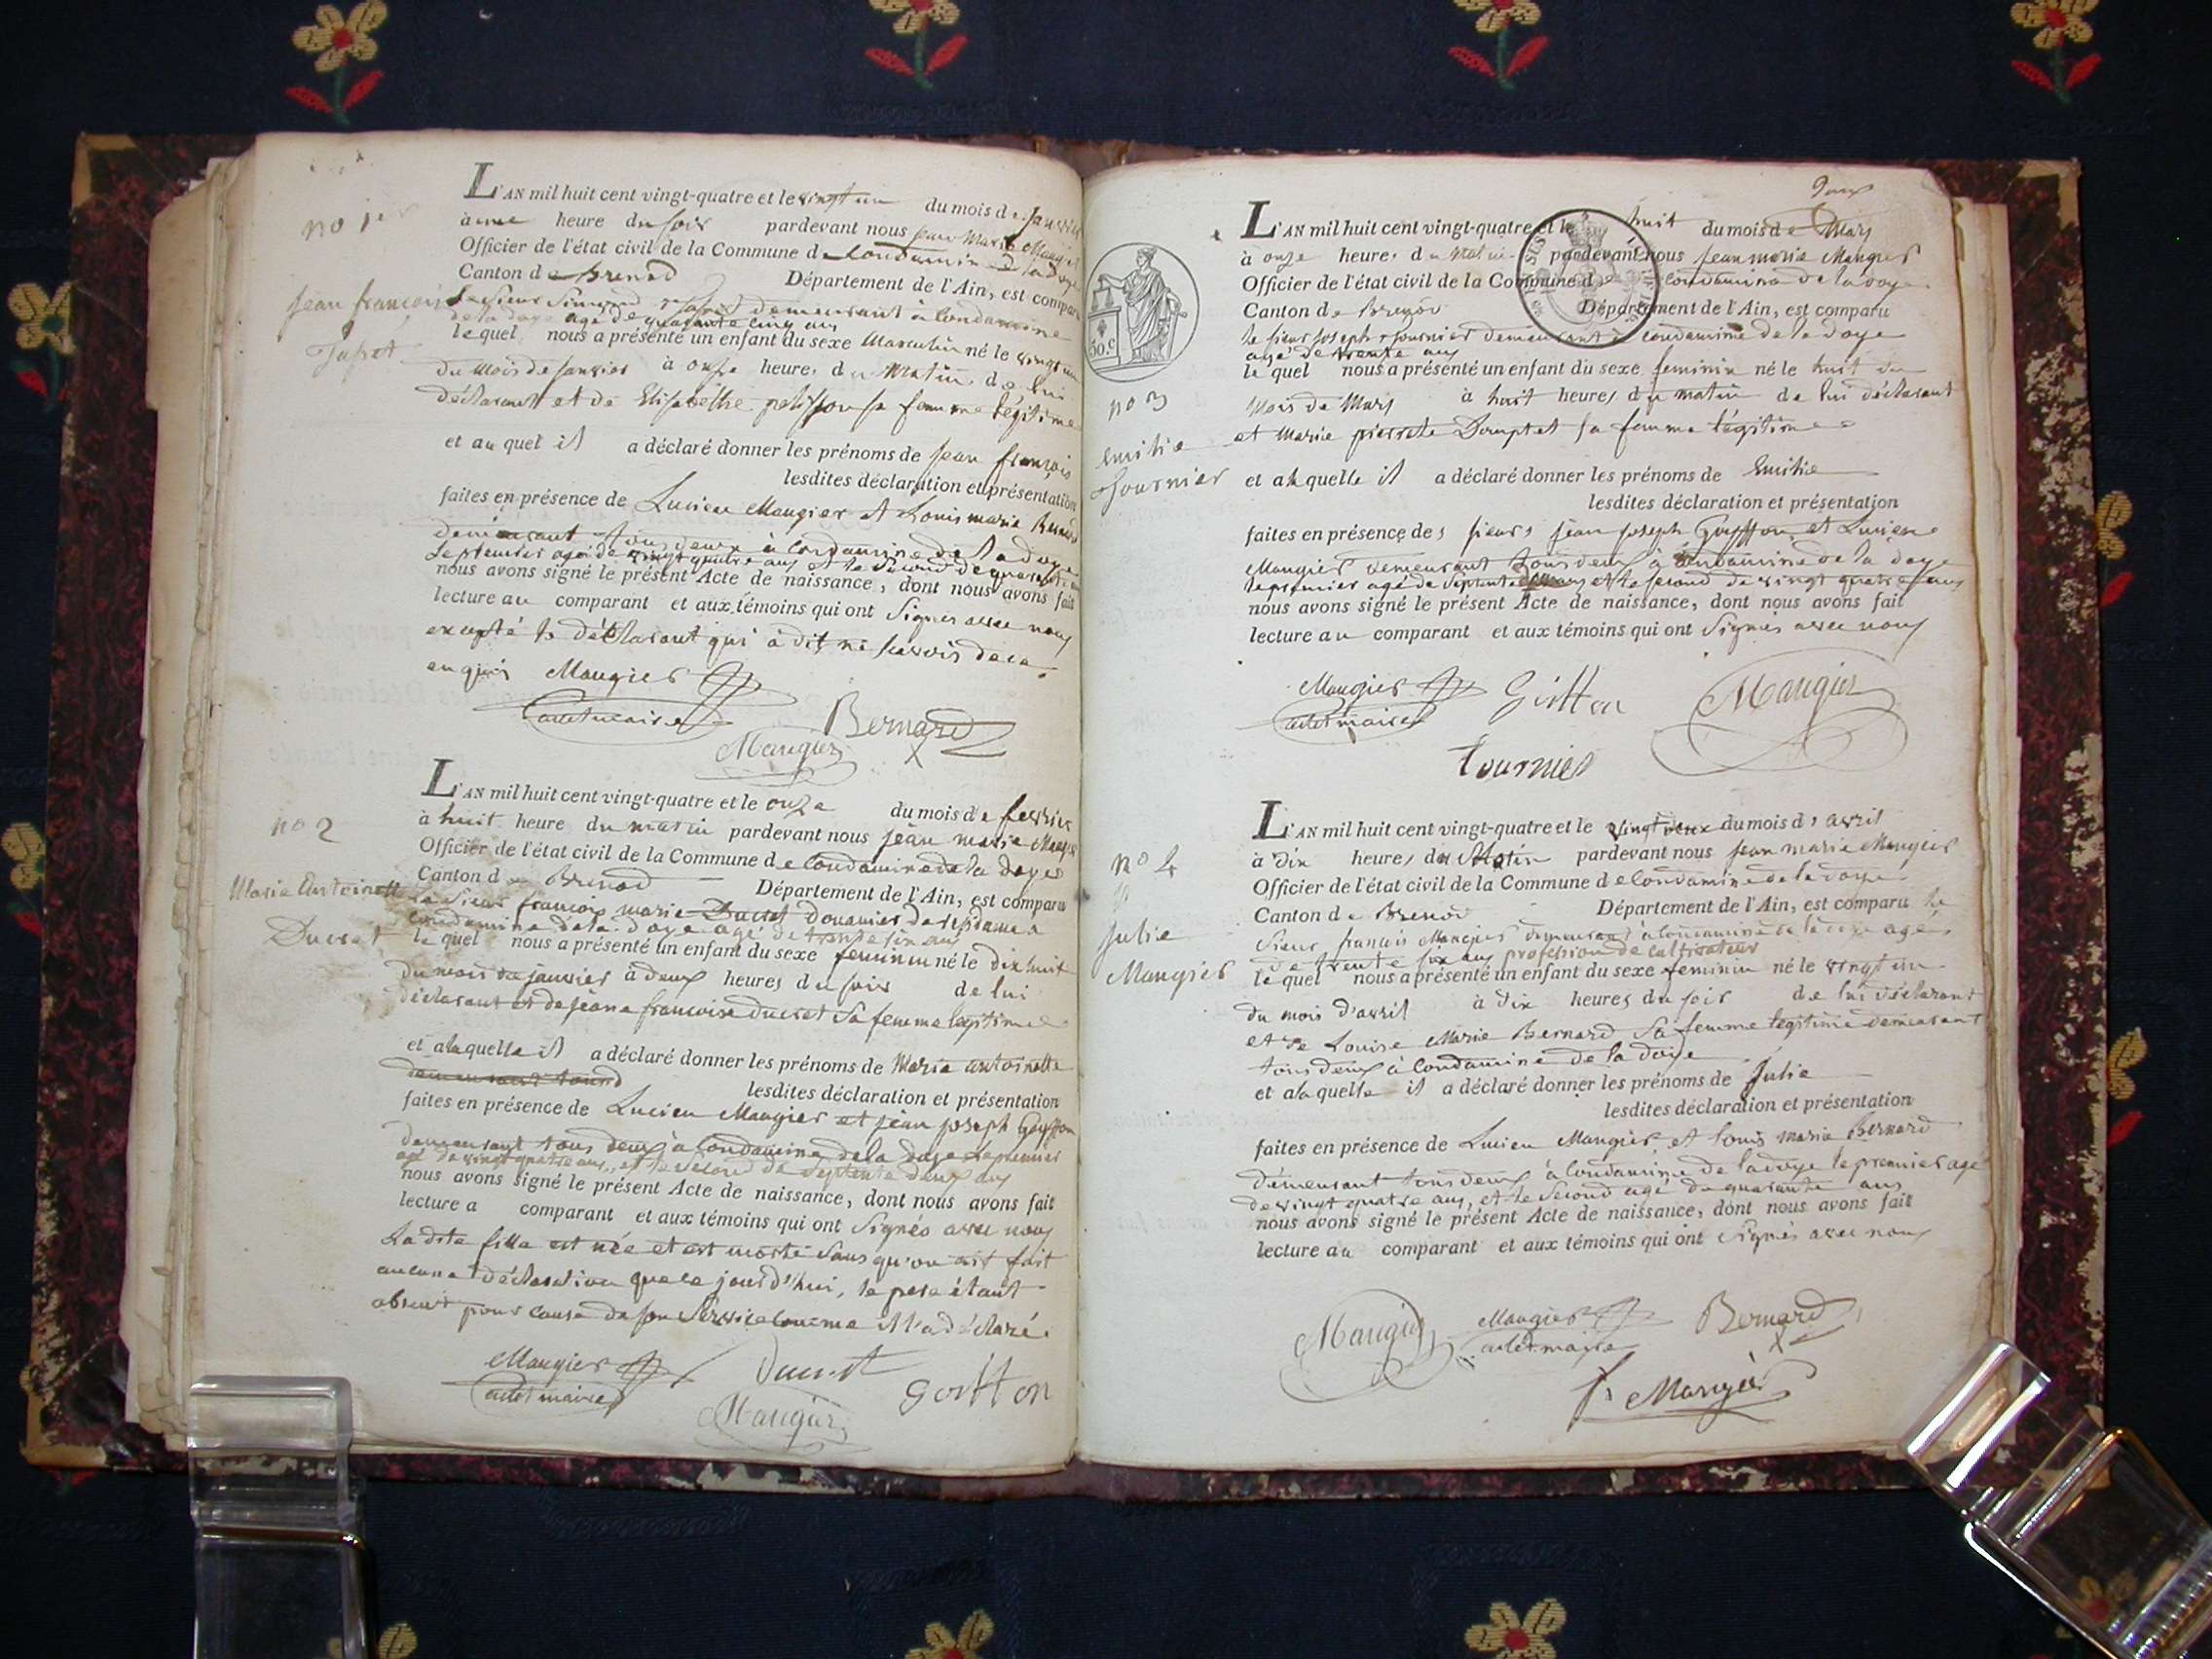 no 1er
Jean françois
L'AN mil huit cent vingt-quatre et le vingt un du mois de janvier
à une heure du soir pardevant nous jean Marie Maugier
Officier de l'état civil de la Commune de Condamine de la doye
Canton de Brenod Département de l'Ain, est comparu
Le Sieur demeurant à Condamine
de la doye agé de quarante cinq ans
le quel nous a présenté un enfant du sexe Masculin né le vingt un
du Mois de janvier à onze heures du Matin de lui
déclarant et de Elisabethe sa femme légitime
et au quel il a déclaré donner les prénoms de jean françois
lesdites déclaration et présentation
faites en présence de Lucien Maugier et Louis marie Bernard
demeurant tous deux à Condamine de la doye
agé de vingt quatre ans et le second de quarante
nous avons signé le présent Acte de naissance, dont nous avons fait
lecture au comparant et aux témoins qui ont Signés avec nous
excepté le déclarant qui à dit ne savoir de ce
enquis Maugier
adct maire
Bernard
Maugier
no 2
Marie Antoinette
Ducret
L'AN mil huit cent vingt-quatre et le onze du mois de fevrier
à huit heure du matin pardevant nous jean marie Maugier
Officier de l'état civil de la Commune de Condamine de la doye
Canton de Brenod Département de l'Ain, est comparu
Le Sieur françois marie Ducret douanier de residance a
Condamine de la doye agé de trente six ans
le quel nous a présenté un enfant du sexe feminin né le dix huit
du mois de janvier à deux heures du soir de lui
déclarant et de jeane francoise Ducret Sa femme legitime
et a la quelle il a déclaré donner les prénoms de Marie antoinette
lesdites déclaration et présentation
faites en présence de Lucien Maugier et jean joseph Goyffon
demeurant tous deux à Condamine de la doye le premier
agé de vingt quatre ans, et le second de septente deux ans
nous avons signé le présent Acte de naissance, dont nous avons fait
lecture a comparant et aux témoins qui ont Signés avec nous
La dite fille est née et est morte sans qu'on ait fait
aucune déclaration que ce jourd'hui, le pere étant
absent pour cause de son Service comme il l'a déclaré.
Maugier
adct maire
Ducret
goiffon
Maugier
Deux
50.c
no 3
Emilie
Fournier
L'AN mil huit cent vingt-quatre et le huit du mois de Mars
à onze heures du Matin pardevant nous jean marie Maugier
Officier de l'état civil de la Commune de Condamine de la doye
Canton de Brenod Département de l'Ain, est comparu
le sieur joseph fournier demeurant à condamine de la doye
agé de trente ans
le quel nous a présenté un enfant du sexe feminin né le huit du
Mois de Mars à huit heures du matin de lui déclarant
et Marie pierrete sa femme légitime
et a la quelle il a déclaré donner les prénoms de Emilie
lesdites déclaration et présentation
faites en présence des sieurs jean joseph Goyffon, et Lucien
Maugier demeurant tous deux à Condamine de la doye
le premier agé de Septante ans et le second de vingt quatre ans
nous avons signé le présent Acte de naissance, dont nous avons fait
lecture au comparant et aux témoins qui ont Signés avec nous
Maugier
adct maire
Goiffon
Maugier
tournier
no 4
Julie
Maugier
L'AN mil huit cent vingt-quatre et le vingt deux du mois d'avril
à dix heures du Matin pardevant nous jean marie Maugier
Officier de l'état civil de la Commune de Condamine de la doye
Canton de Brenod Département de l'Ain, est comparu le
Sieur françois Maugier demeurant à Condamine de la doye agé
de trente six ans profession de cultivateur
le quel nous a présenté un enfant du sexe feminin né le vingt un
du mois d'avril à dix heures du soir de lui déclarant
et de Louise Marie Bernard Sa femme legitime demeurant
tous deux à Condamine de la doye
et a la quelle il a déclaré donner les prénoms de Julie
lesdites déclaration et présentation
faites en présence de Lucien Maugier, et louis marie Bernard
démeurant tous deux à Condamine de la doye le premier agé
de vingt quatre ans, et le Second agé de quarante ans
nous avons signé le présent Acte de naissance, dont nous avons fait
lecture au comparant et aux témoins qui ont Signés avec nous
Maugier
Maugier
adct maire
Bernard
fs Maugier